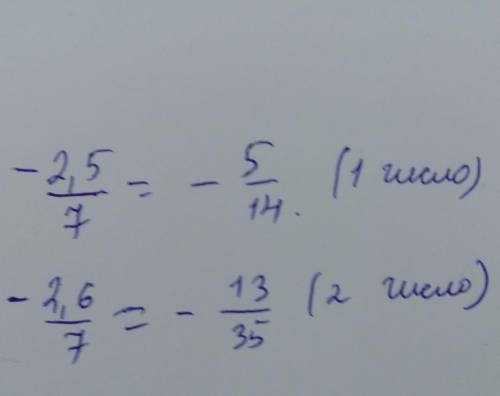 -2,5/7 = - 5/14. (1 число)
-2,6/7 = - 13/35 (2 число)